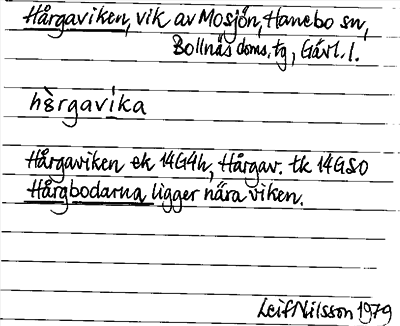 Hårgaviken, vik av Mosjön, Hanebo sn,
Bollnäs doms.tg, Gävl. l.
hèrgavika
Hårgaviken ek 14G4h, Hårgav. tk 14GSO
Hårgbodarna ligger nära viken.
Leif Nilsson 1979